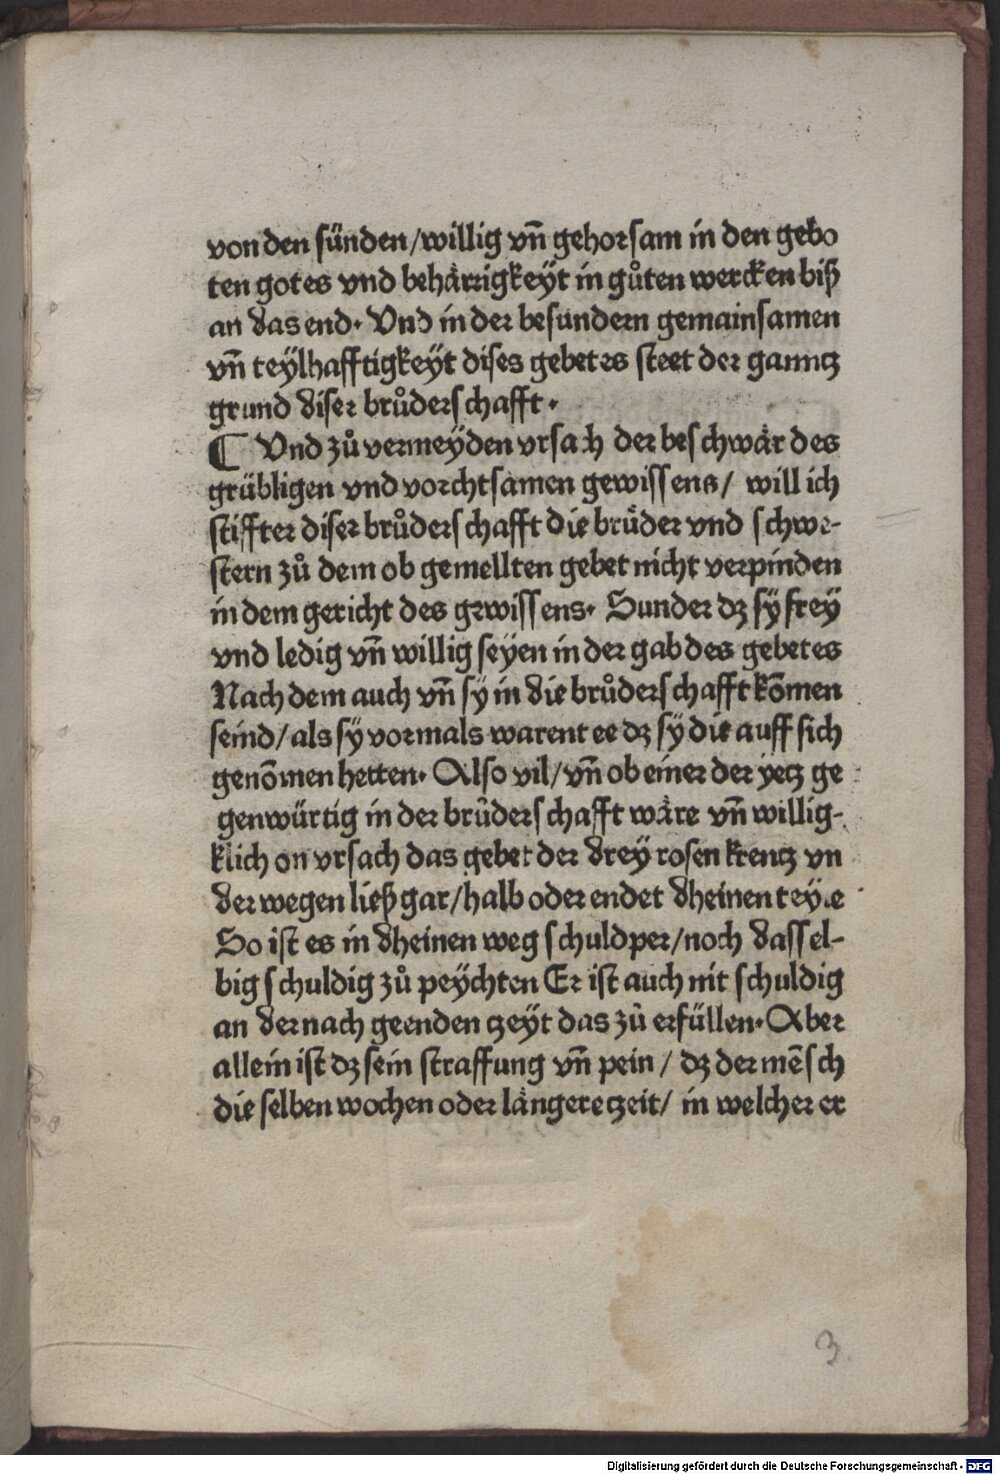 von den sünden/willig vn̄ gehorsam in den gebo
ten gotes vnd behärrigkeyt in gůten wercken biß
an das end. Vnd in der besundern gemainsamen
vn̄ teylhafftigkeyt dises gebetes steet der ganntz
grund diser brůderschafft.
¶ Vnd zů vermeyden vrsach der beschwär des
grübligen vnd vorchtsamen gewissens/ will ich
stiffter diser brůderschafft die brüder vnd schwe-
stern zů dem ob gemellten gebet nicht verpinden
in dem gericht des gewissens. Sunder dz sy frey
vnd ledig vn̄ willig seyen in der gab des gebetes
Nach dem auch vn̄ sy in die brůderschafft kom̄en
seind/als sy vormals warent ee dz sy die auff sich
genom̄en hetten. Also vil/vn̄ ob einer der yetz ge
genwürtig in der brůderschafft wäre vn̄ willig-
klich on vrsach das gebet der drey rosen krentz vn
der wegen ließ gar/halb oder endet dheinen teyle
So ist es in dheinen weg schuldper/noch dassel-
big schuldig zů peychten Er ist auch nit schuldig
an der nach geenden tzeyt das zů erfüllen. Aber
allein ist dz sein straffung vn̄ pein/ dz der mēsch
die selben wochen oder längere tzeit/ in welcher er
3
Digitalisierung gefördert durch die Deutsche Forschungsgemeinschaft - DFG